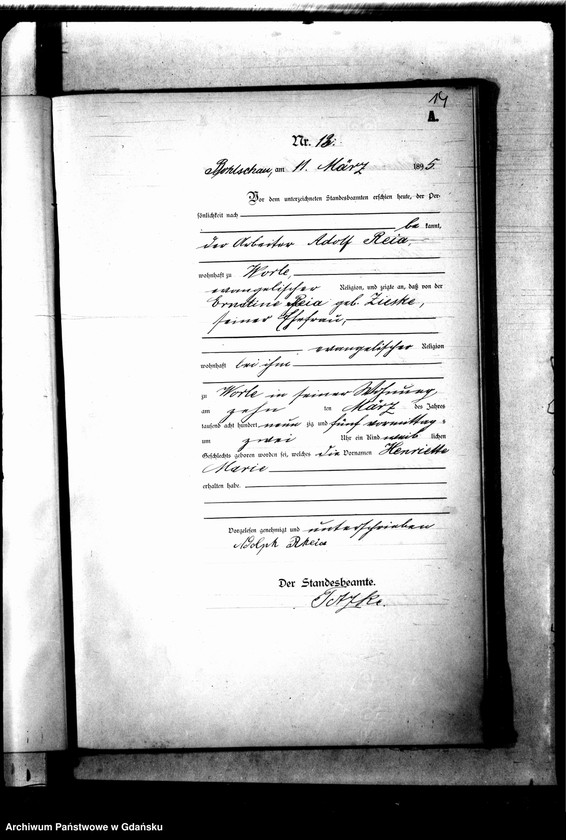 14
A.
Nr. 13.
Bohlschau, am 11. März 1895.
Vor dem unterzeichneten Standesbeamten erschien heute, der Per-
sönlichkeit nach
be kannt,
der Arbeiter Adolf Reia,
wohnhaft zu Worle,
evangelischer Religion, und zeigte an, daß von der
Ernstine Reia geb. Zieske,
seiner Ehefrau,
evangelischer Religion
wohnhaft bei ihm
zu Worle in seiner Wohnung,
am zehn ten März des Jahres
tausend acht hundert neun zig und fünf vormittag s
um zwei Uhr ein Kind weib lichen
Geschlechts geboren worden sei, welches die Vornamen Henriette
Marie
erhalten habe.
Vorgelesen genehmigt und unterschrieben
Adolph Rheia
Der Standesbeamte.
Archiwum Państwowe w Gdańsku